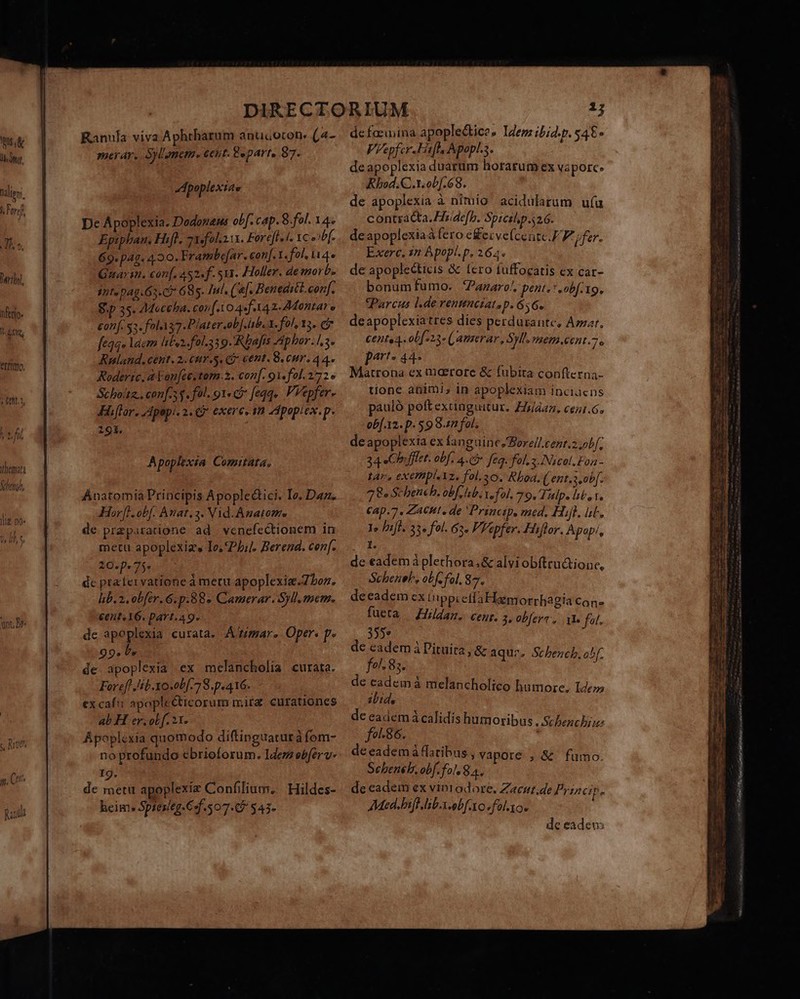 DIRECTORIUM 13
Ranula viva Aphtharum antidoton. (a-
merar. Syll. mem. cent. 8. part. 87.
Apoplexiae
De Apoplexia. Dodonæus obs. cap. 8. fol. 14.
Epiphan. Hist. 71. fol. 211. Forest. l. 10. obs.
69. pag. 430. Frambesar. cons. 1. fol. 114.
Guarin. cons. 452. f. 511. Holler. de morb.
int. pag. 63. & 685. Iul. Cæs. Benedict. cons.
8. p 35. Moccha. cons. 104. f. 142. Montan.
cons. 53. fol. 137. Plater. obs. lib. 1. fol. 13. &
seqq. Idem lib. 2. fol. 339. Rhasis Aphor. l. 3.
Ruland. cent. 2. cur. 5. & cent. 8. cur. 44.
Roderic. à Fonsec. tom. 2. cons. 91. fol. 272.
Scholtz. cons. 35. fol. 91. & seqq. VVepfer.
Histor. Apopl. 2. & exerc. in Apoplex. p.
291.
Apoplexia Comitata.
Anatomia Principis Apoplectici. Io. Dan.
Horst. obs. Anat. 3. Vid. Anatome
de præparatione ad venefectionem in
metu apoplexiæ. Io. Phil. Berend. cons.
20. p. 75.
de præservatione à metu apoplexiæ. Thon.
lib. 2. obser. 6. p. 88. Camerar. Syll. mem.
cent. 16. part. 49.
de apoplexia curata. Aʒmar. Oper. p.
99. b.
de apoplexia ex melancholia curata.
Forest. lib. 10. obs. 78. p. 416.
ex casu apoplecticorum miræ curationes
ab H er. obs. 21.
Apoplexia quomodo distinguatur à som-
no profundo ebriosorum. Idem observ.
19.
de metu apoplexiæ Consilium. Hildes-
heim. Spicileg. 6. f. 507. & 543.
de fœmina apoplectice. Idem ibid. p. 548.
VVepfer. Hist. Apopl. 3.
de apoplexia duarum horarum ex vapore.
Rhod. C. 1. obs. 68.
de apoplexia à nimio acidularum usu
contracta. Hildesh. Spicil. p. 526.
de apoplexia à sero effervescente. VVepfer.
Exerc. in Apopl. p. 264.
de apoplecticis & sero suffocatis ex car-
bonum fumo. Panarol. pent. obs. 19.
Parcus l. de renunciat. p. 656.
de apoplexia tres dies perdurante. Amat.
cent. 4. obs. 23. Camerar. Syll. mem. cent. 7.
part. 44.
Matrona ex mœrore & subita consterna-
tione animi, in apoplexiam incidens
pauló post extinguitur. Hildan. cent. 6.
obs. 12. p. 598. in fol.
de apoplexia ex sanguine. Borell. cent. 2. obs.
34. Chifflet. obs. 4. & seq. fol. 3. Nicol. Fon-
tan. exempl. 12. fol. 30. Rhod. Cent. 3. obs.
78. Schench. obs. lib. 1. fol. 79. Tulp. lib. 1.
cap. 7. Zacut. de Princip. med. Hist. lib.
1. hist. 33. fol. 63. VVepfer. Histor. Apopl.
1.
de eadem à plethora, & alvi obstructione,
Schench. obs. fol. 87.
de eadem ex suppressa Hæmorrhagia con-
sueta Hildan. cent. 3. observ. 11. fol.
355.
de eadem à Pituita, & aquæ. Schench. obs.
fol. 83.
de eadem à melancholico humore. Idem
ibid.
de eadem à calidis humoribus. Schenchius
fol. 86.
de eadem à flatibus, vapore, & fumo.
Schench. obs. fol. 84.
de eadem ex vini odore. Zacut. de Princip.
Med. hist. lib. 1. obs. 10. fol. 10.
de eadem